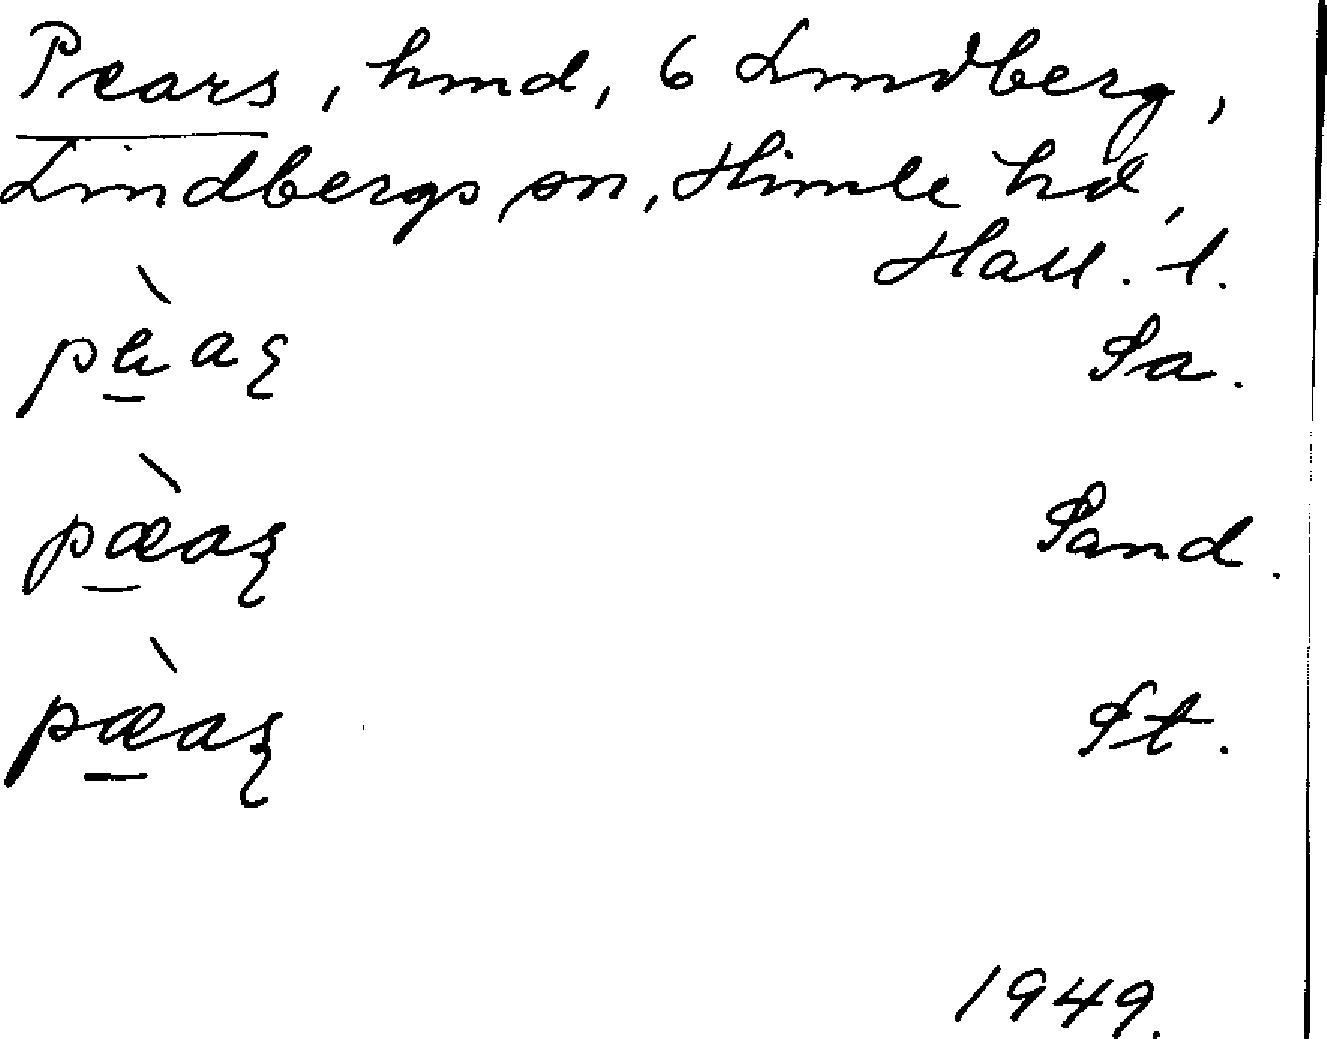 Pears, hmd, 6 Lindberg,
Lindbergs sn, Himle hd,
Hall. l.
Sa.
pæ̀aʂ Sand.
pæ̀aʂ St.
1949.